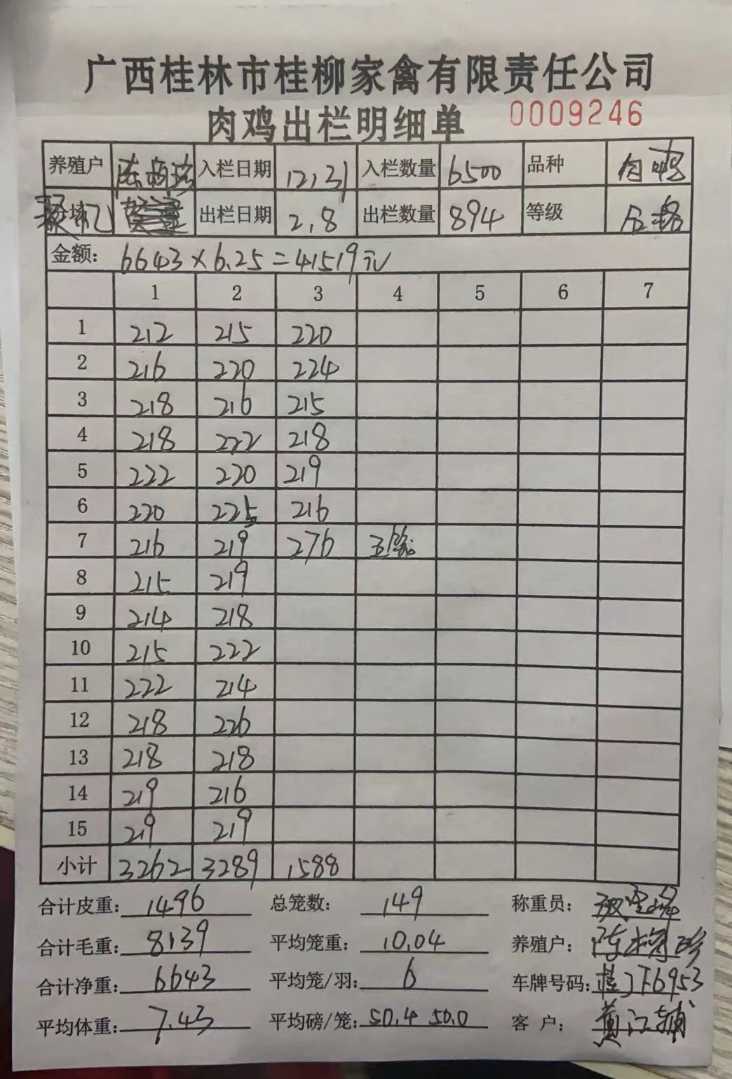 广西桂林市桂柳家禽有限责任公司
肉鸡出栏明细单 0009246
养殖户 入栏日期 12,31 入栏数量 6500 品种 肉鸭
出栏日期 2,8 出栏数量 894 等级
金额: 6643×6.25=41519元
1 2 3 4 5 6 7
1 212 215 220
2 216 220 224
3 218 216 215
4 218 222 218
5 222 220 219
6 220 225 216
7 216 219 276
8 215 219
9 214 218
10 215 222
11 222 214
12 218 226
13 218 218
14 219 216
15 219 219
小计 3262 3289 1588
合计皮重: 1496 总笼数: 149 称重员:
合计毛重: 8139 平均笼重: 10.04 养殖户:
合计净重: 6643 平均笼/羽: 6 车牌号码:
平均体重: 7.43 平均磅/笼: 50.4 50.0 客户: